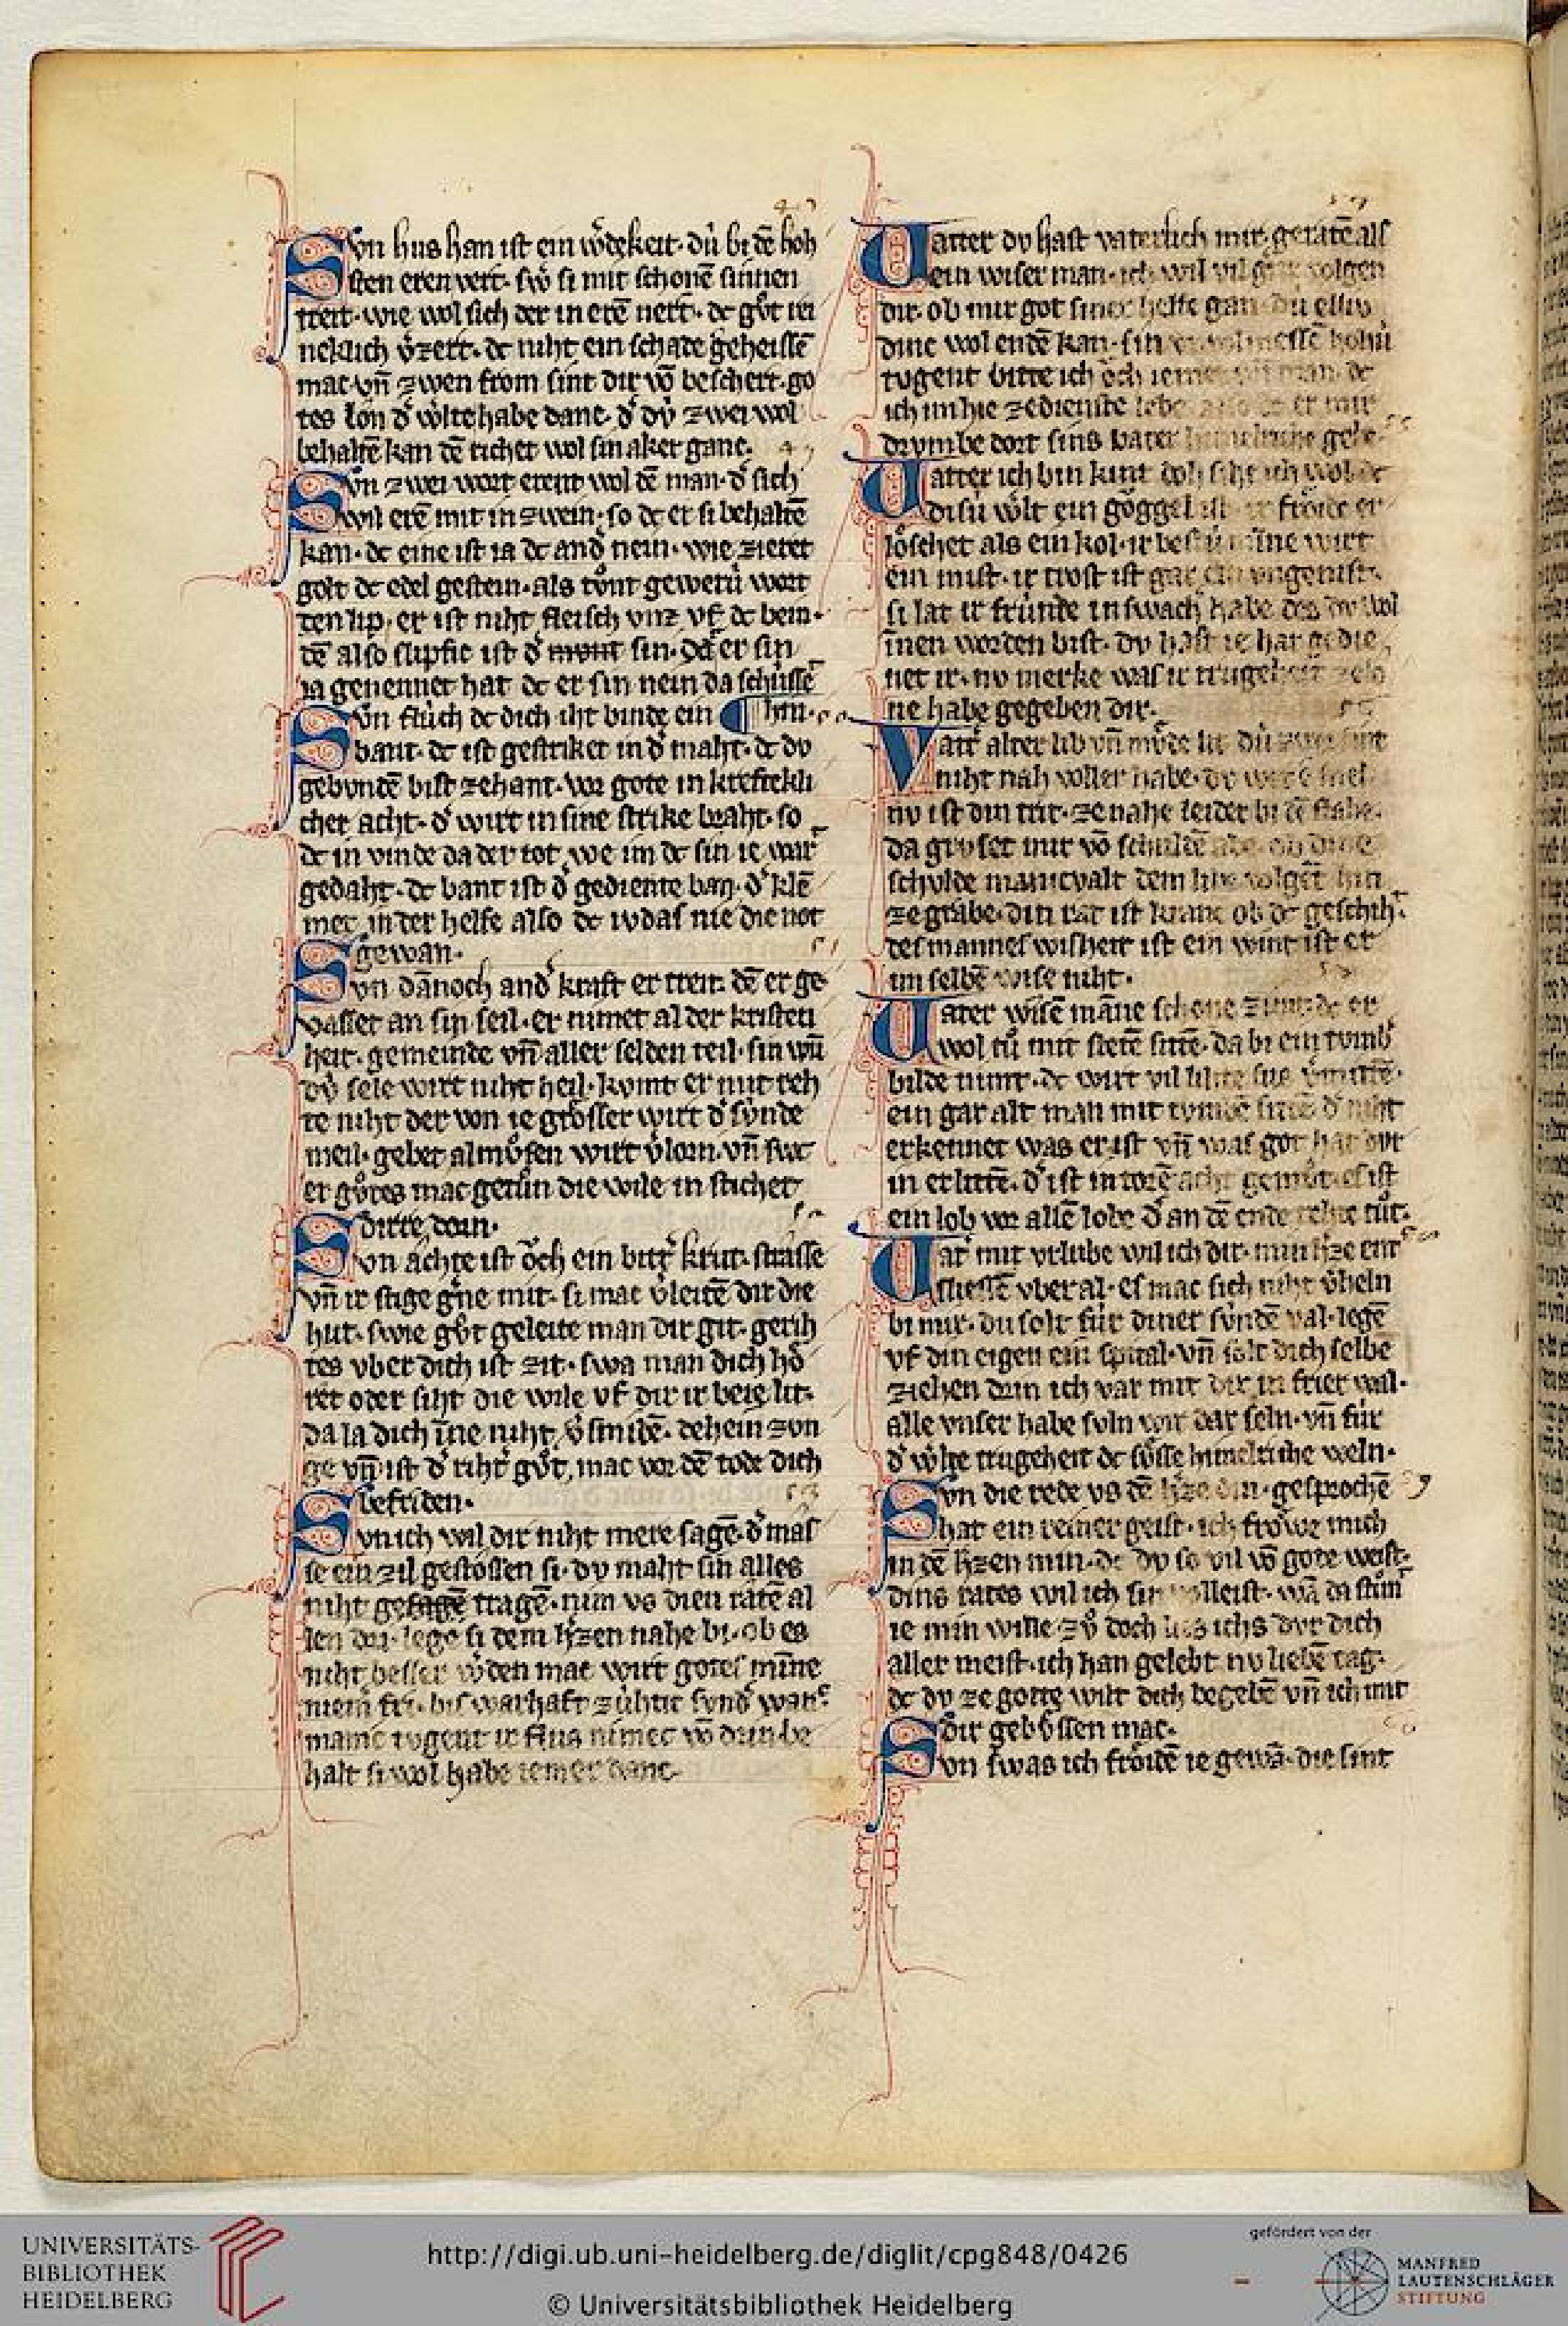 Svn hus han ist ein wdekeit· dú bi dē hoh
sten eren vert· swˢ si mit schonē sinnen
treit· wie wol sich der in erē nert· dc gvͦt rei
neklich vˢzert· dc niht ein schade geheissē
mac vn̄ zwen from sint dir vō beschert· go
tes lon dˢ wˢlte habe danc· dˢ dv́ zwei wol
behaltē kan dē richet wol sin aker ganc·
Svn zwei wort erent wol dē man· dˢ sich
wil erē mit in zwein· so dc er si behaltē
kan· dc eine ist ia dc andˢ nein· wie zieret
golt dc edel gestein· als tvͦnt gewerú wort
den lip· er ist niht fleisch vnz vf dc bein·
dē also slipfic ist dˢ munt sin· da er sin
ia genennet hat dc er sin nein da schússe
Svn fluch dc dich iht binde ein ¶ hin·
bant· dc ist gestriket in dˢ maht· dc dv
gebvndē bist zehant· vor gote in krefrekli
cher acht· dˢ wirt in sine strike braht· so
dc in vinde da der tot we im dc sin ie war
gedaht· dc bant ist dˢ gediente ban· dˢ klē
met in der helfe also dc ivdas nie die not
gewan·
Svn dānoch andˢ kraft er treit· dē er ge
vasset an sin seil· er nimet al der kristen
heit· gemeinde vn̄ aller selden teil· sin wū
dv́ sele wirt niht heil· komt er mit reh
te niht der von ie grosser wirt dˢ svnde
meil· gebet almvͦsen wirt vˢlorn· vn̄ swc
er gvͦtes mac getvͦn die wile in stichet
dirre dorn·
Svn achte ist oͮch ein bittˢ krut· strasse
vn̄ ir stige gˢne mit· si mac vˢleitē dir die
hut· swie gvͦt geleite man dir git· gerih
tes vber dich ist zit· swa man dich hoͤ
ret oder siht die wile vf dir ir beie lit·
da la dich īne niht vˢsmidē· dehein zvn
ge vn̄ ist dˢ rihtˢ gvͦt, mac vor dē tode dich
befriden·
Svn ich wil dir niht mere sagē· dˢ mas
se ein zil gestossen si· dv maht sin alles
niht gesagē tragē· nim vs dien rætē al
len dri· lege si dem hˢzen nahe bi· ob es
niht besser wˢden mac wirt gotes mīne
niem̄ fri· bis warhaft zúhtic svndˢ wanc
manic tvgent ir flus nimec vō drin· be
halt si wol habe iemer danc·
Vatter dv hast vaterlich mir geratē als
ein wiser man· ich wil vil gar volgen
dir· ob mir got siner helfe gan· dv elliv
dinc wol endē kan· sin volmessē hohú
tvgent bitte ich oͮch iemer man· dc
ich im hie ze dienste lebe also dc er mir
drvmbe dort sins vater himelriche gebe·
Vatter ich bin kint doh siht ich wol dc
disú wˢlt ein goͮggel ist· ir froͤide er
loͤschet als ein kol· ir bestú mīne wirt
ein mist· ir trost ist gar ein vngenist·
si lat ir frúnde in swach habe des dv wol
īnen worden bist· dv hast ir har gedie
net ir· nv merke was ir trúgeheit zelo
ne habe gegeben dir·
Vattˢ alter lib vn̄ mvͤde lit dú zwei sint
niht nah voller habe· dv were snel
nv ist din trit· ze nahe leider bi dē stabe·
da grvset mir vō schuldē abe· ob dine
schvlde manicvalt dem libe volgēt hin
ze grabe· din rat ist kranc ob dc geschiht·
des mannes wisheit ist ein wint ist er
im selbē wise niht·
Vater wisē māne schone zimt dc er
wol tvͦ mit stetē sittē· da bi ein tvmbˢ
bilde nimt· dc wirt vil lihte sus vˢmittē·
ein gar alt man mit tvmbē sittē dˢ niht
erkennet was er ist vn̄ was got hat dvr
in erlittē· dˢ ist in torē aht gemvͦt· es ist
ein lob vor allē lobe dˢ an dē ende rehte tvͦt·
Vatˢ mit vrlube wil ich dir· min hˢze ent
sliessē vber al· es mac sich niht vˢheln
bi mir· du solt fúr diner svndē val· legē
vf din eigen ein spital· vn̄ solt dich selbe
ziehen drin ich var mit dir in frier wal·
alle vnser habe svln wir dar seln· vn̄ fúr
dˢ wˢlte trúgeheit dc svͤsse himelriche weln·
Svn die rede vs dē hˢze din· gesprochē
hat ein reiner geist· ich froͤwe mich
in dē hˢzen min· dc dv so vil vō gote weist·
dins rates wil ich sin volleist· wā da stúnt
ie min wille zvͦ doch lies ichs dvr dich
aller meist· ich han gelebt nv liebē tag·
dc dv ze gotte wilt dich begebē vn̄ ich mit
dir gebvͤssen mac·
Svn swas ich froͤidē ie gewā· die sint
UNIVERSITÄTS-
BIBLIOTHEK
HEIDELBERG
http://digi.ub.uni-heidelberg.de/diglit/cpg848/0426
© Universitätsbibliothek Heidelberg
gefördert von der
MANFRED
LAUTENSCHLÄGER
STIFTUNG